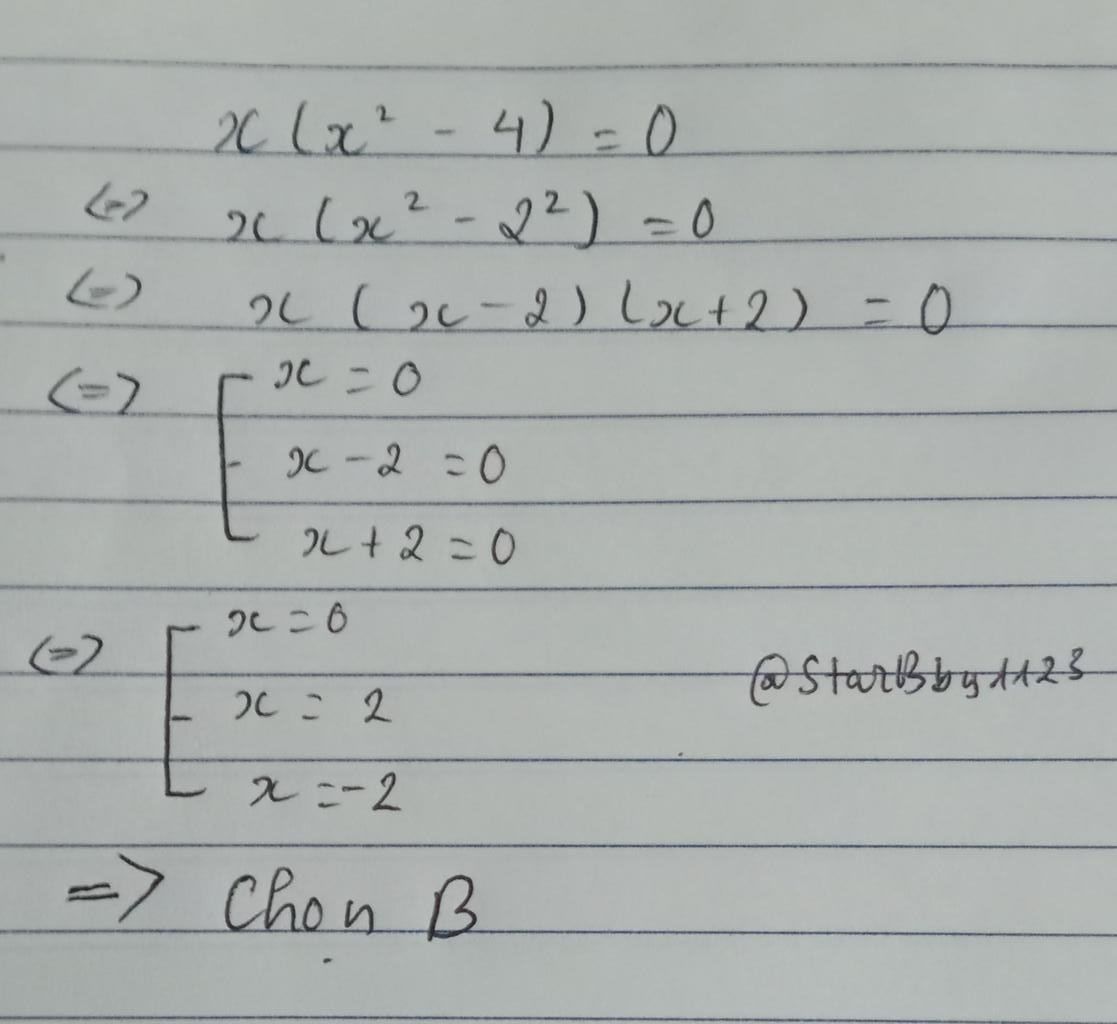 x(x² - 4) = 0
<=> x(x² - 2²) = 0
<=> x(x - 2)(x + 2) = 0
<=> [ x = 0
x - 2 = 0
x + 2 = 0
<=> [ x = 0
x = 2
x = -2
@StarBby1123
=> Chọn B